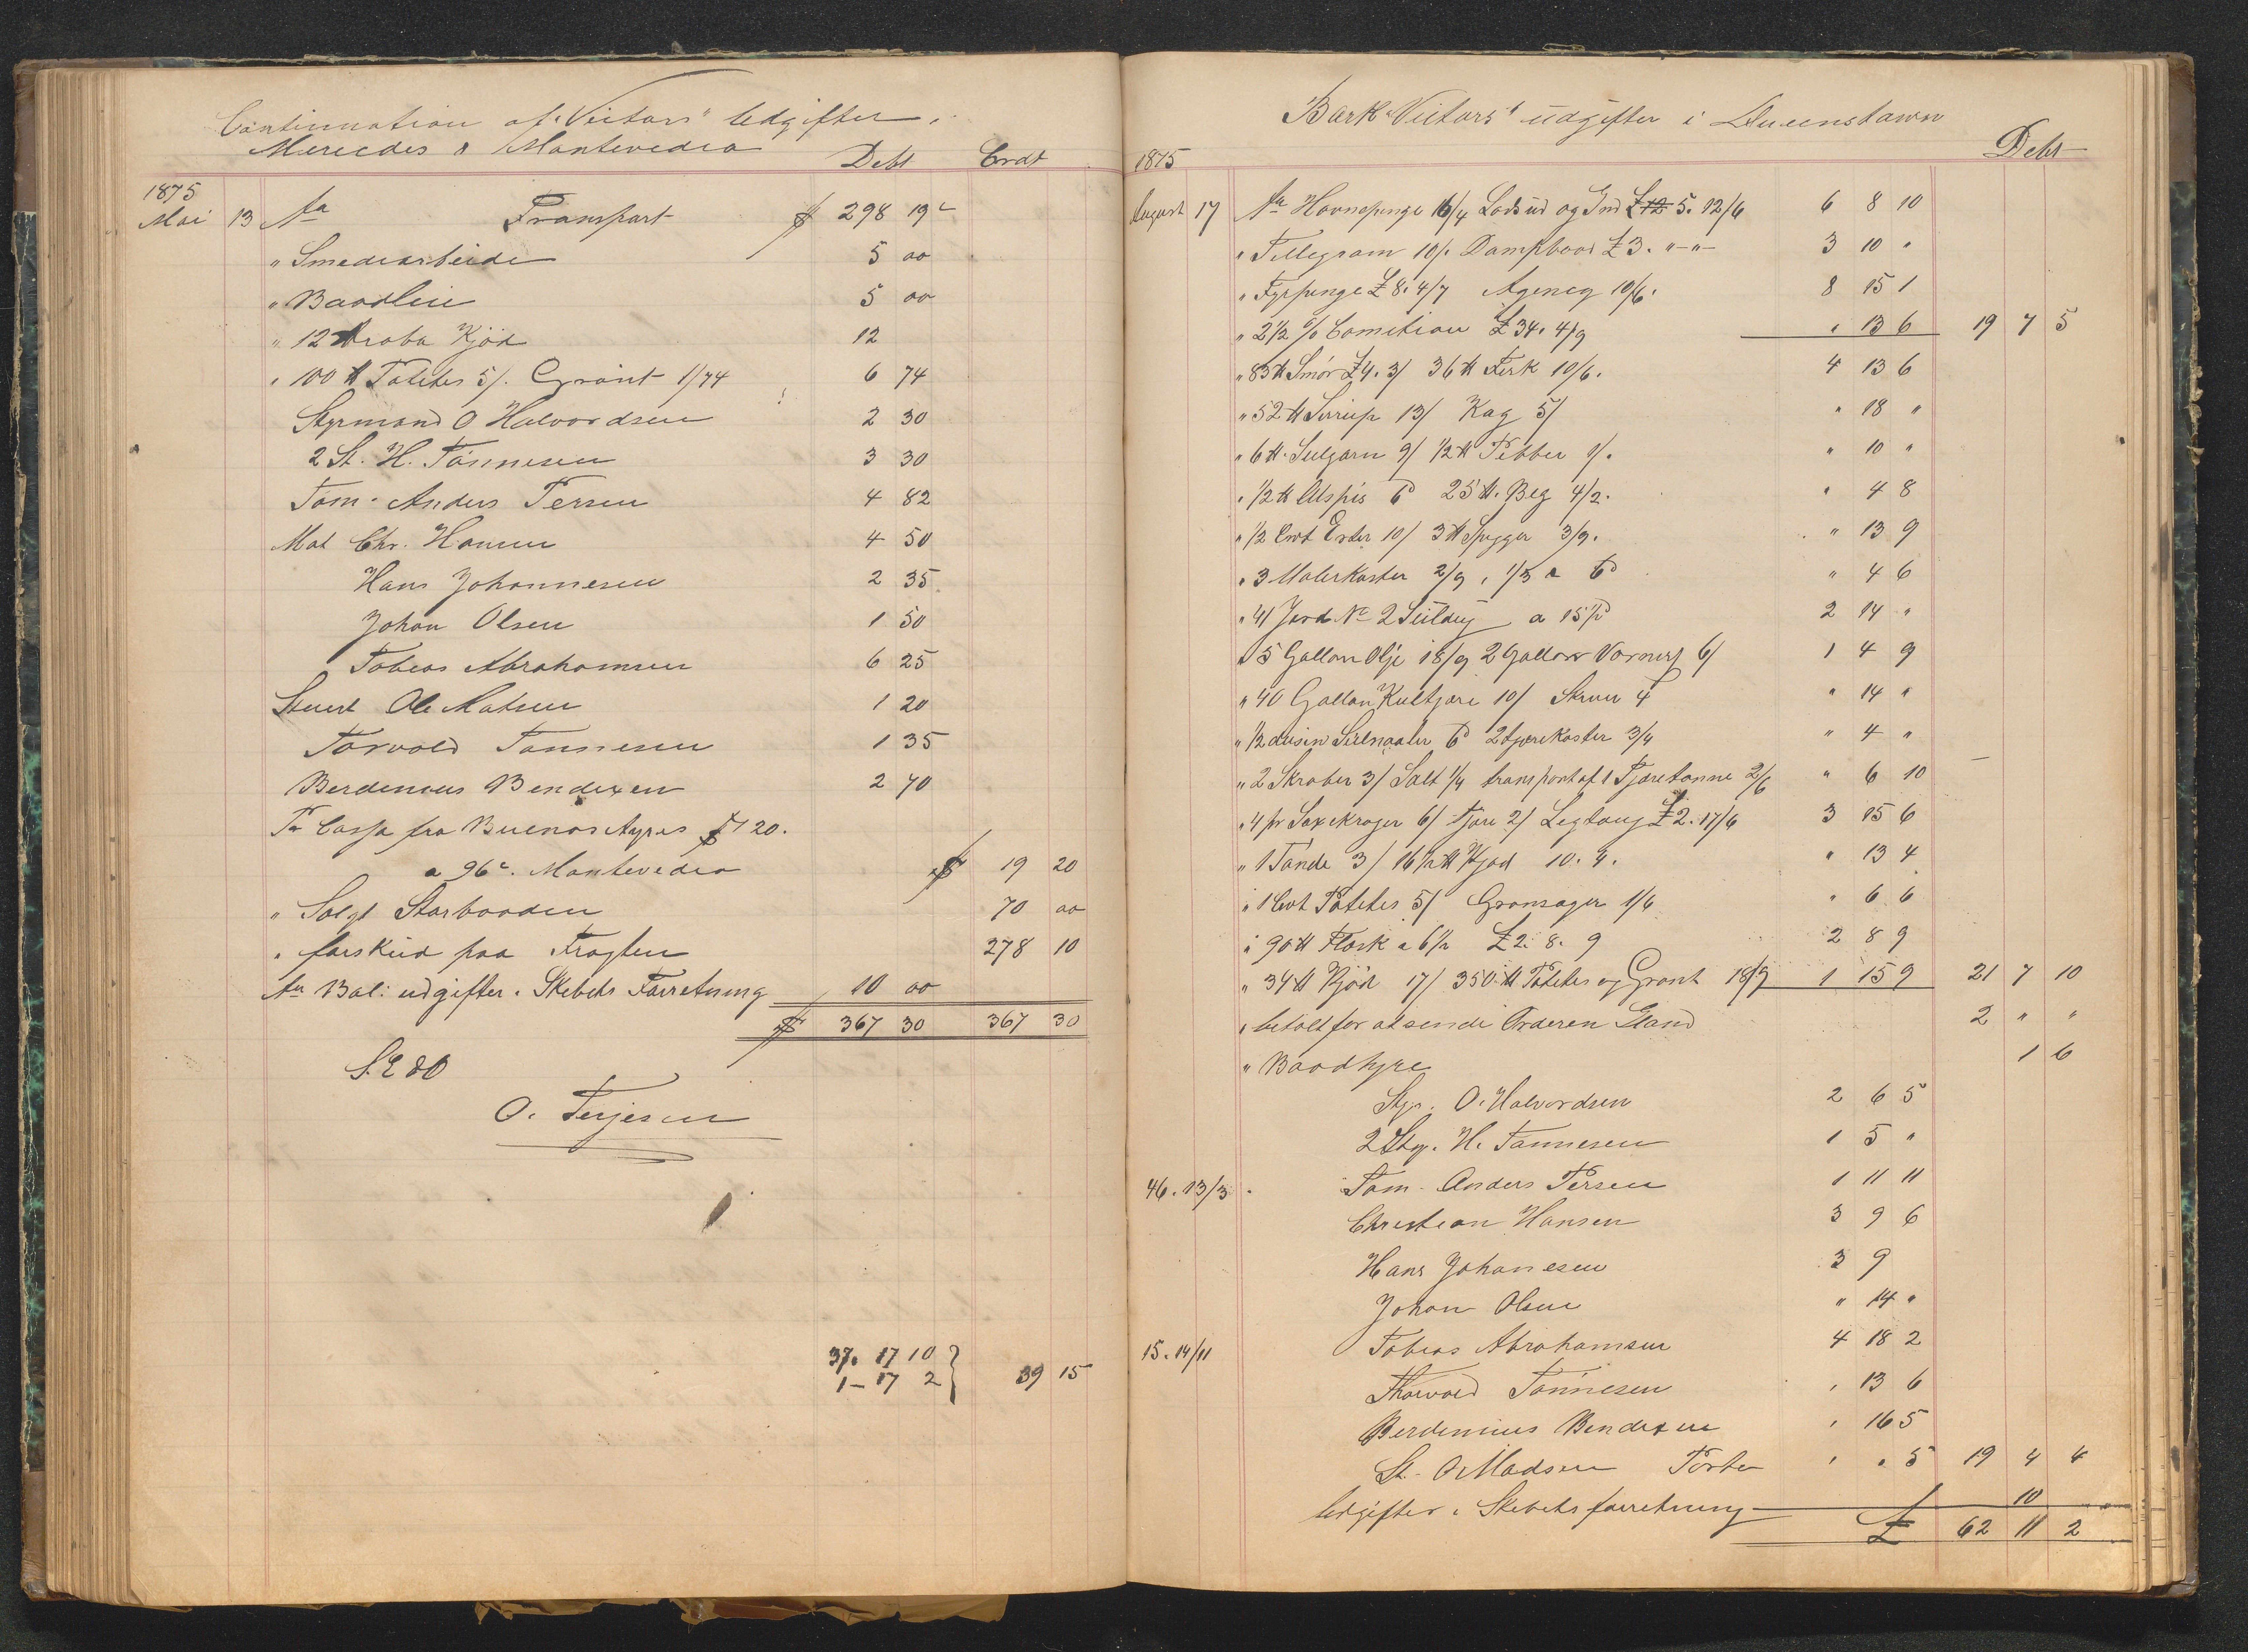 Continuation af "Victors" Udgifter i
Mercedes & Montevedeo Debt Crdt
1875
Mai 13 An Transport $ 298 19c
" Smedearbeide 5 00
" Baadleie 5 00
" 12 Aroba Kjöd 12
" 100 ℔ Potetes 5/. Grönt 1/74 6 74
Styrmand O Halvordsen 2 30
2 St. H. Tönnesen 3 30
Töm. Anders Tersen 4 82
Mat Chr. Hansen 4 50
Hans Johannesen 2 35
Johan Olsen 1 50
Tobias Abrahamsen 6 25
Stuert Ole Matsen 1 20
Torvald Tönnesen 1 35
Berdenius Bendixen 2 70
Pr Cassa fra Buenos Ayres $ 20.
a 96c. Montevedeo $ 19 20
" Solgt Storbaaden 70 00
" forskud paa Fragten 278 10
An Bal: udgifter i Skibets Forretning 10 00
$ 367 30 367 30
S. E & O
O. Terjesen
37. 17 10
1 – 17 2 } 39 15
Bark "Victors" udgifter i Queenstown
1875 Debt
August 17 An Havnepenge 16/4 Lods ud og Ind £ 12 5. 12/6 6 8 10
" Tellegram 10/. Dampbaad £ 3. "–"– 3 10 "
" Fyrpenge £ 8. 4/7 Agency 10/6. 8 15 1
" 2 1/2 % Comition £ 34. 4/9 " 13 6 19 7 5
" 83 ℔ Smör £ 4. 3/ 36 ℔ Fesk 10/6. 4 13 6
" 52 ℔ Sirup 13/ Kag 5/ " 18 "
" 6 ℔. Seilgarn 9/ 1/2 ℔ Pebber 1/. " 10 "
" 1/2 ℔ Alspis 6d 25 ℔. Beg 4/2. " 4 8
" 1/2 Cwt Erter 10/ 3 ℔ Spigger 3/9. " 13 9
" 3 Malerkoster 2/9, 1/3 a 6d " 4 6
" 41 Jard No 2 Seildug a 15 1/2 2 14 "
" 5 Gallon Olje 18/9 2 Gallon Vornis 6/ 1 4 9
" 40 Gallon Kultjære 10/ Skruer 4 " 14 "
" 1/2 dusin Seilnaaler 6d 2 tjærekoster 3/4 " 4 "
" 2 Skraber 3/ Salt 1/4 transport af 1 Tjæretönne 2/6 " 6 10
" 4 pr Saxekroger 6/ tjære 2/ Legtoug £ 2. 17/6 3 15 6
" 1 Tönde 3/ 16 1/2 ℔ Kjöd 10. 4. " 13 4
" 1 Cwt Potetes 5/ Grönsager 1/6 " 6 6
" 90 ℔ Flæsk a 6 1/2 £ 2. 8. 9 2 8 9
" 34 ℔ Kjöd 17/ 350 ℔ Potetes og Grönt 18/9 1 15 9 21 7 10
" betalt for at sende Orderen 2 " "
" Baadhyre 1 6
Styr. O. Halvordsen 2 6 5
2 Sty. H. Tönnesen 1 5 "
46. 13/3 Töm. Anders Tersen 1 11 11
Christian Hansen 3 9 6
Hans Johanesen 3 9
Johan Olsen " 14 "
15. 14/11 Tobias Abrahamsen 4 18 2
Thorvald Tönnesen " 13 6
Berdenius Bendixen " 16 5
St. O Madsen Porter " " 5 19 4 4
Udgifter i Skibets forretning 10
£ 62 11 2